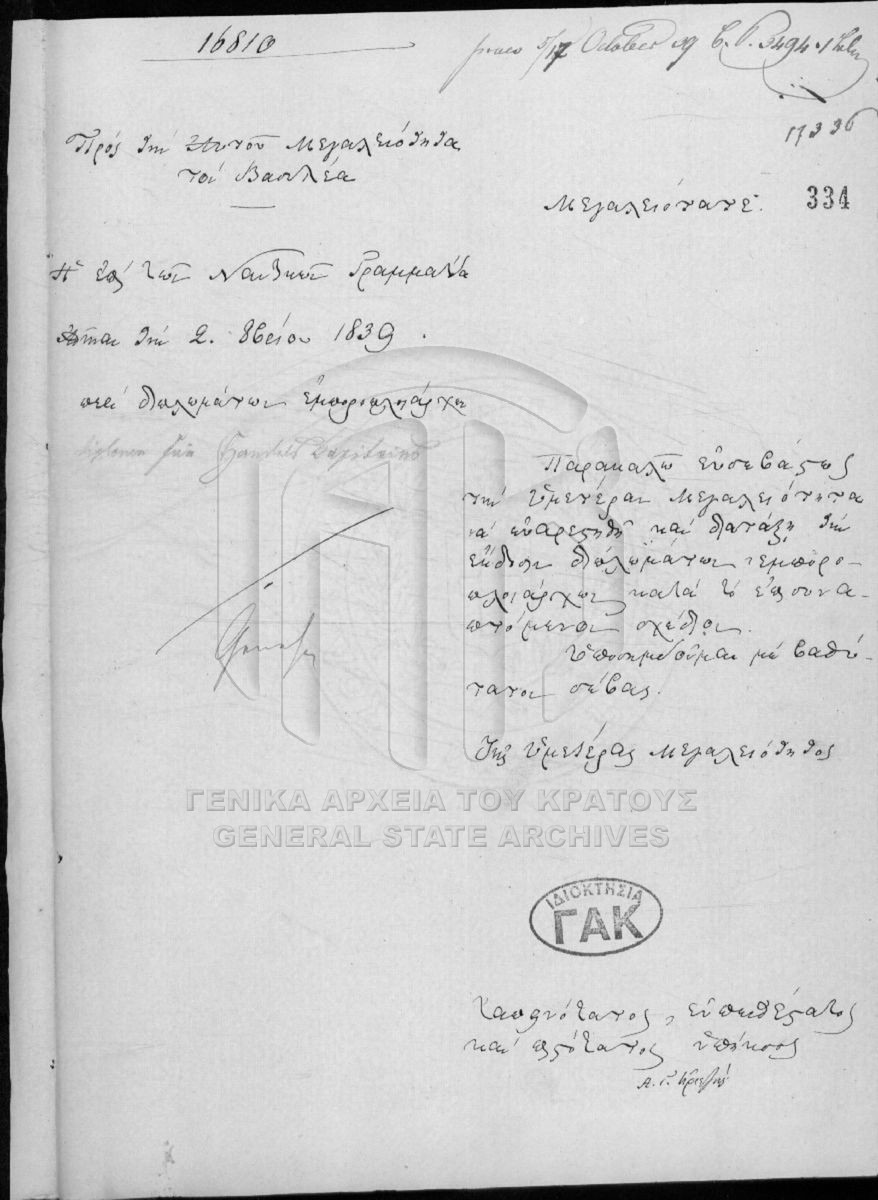 16810
5/17 October 39 C. P. 3494
17336
334
Πρὸς τὴν Αὐτοῦ Μεγαλειότητα
τὸν Βασιλέα
Μεγαλειότατε.
Ἡ ἐπὶ τῶν Ναυτικῶν Γραμματεία
τὴν 2. 8βρίου 1839.
περὶ διπλωμάτων ἐμποροπλοιάρχων
diplomen für Handels Capitains
Παρακαλῶ εὐσεβάστως
τὴν Ὑμετέραν Μεγαλειότητα
νὰ εὐαρεστηθῇ καὶ διατάξῃ τὴν
ἔκδοσιν διπλωμάτων ἐμπορο-
πλοιάρχων κατὰ τὸ ἐπισυνα-
πτόμενον σχέδιον.
Ὑποσημειοῦμαι μὲ βαθύ-
τατον σέβας.
Τῆς Ὑμετέρας Μεγαλειότητος
ΓΕΝΙΚΑ ΑΡΧΕΙΑ ΤΟΥ ΚΡΑΤΟΥΣ
GENERAL STATE ARCHIVES
ΙΔΙΟΚΤΗΣΙΑ
ΓΑΚ
Ταπεινότατος, εὐπειθέστατος
καὶ πιστότατος ὑπήκοος
Α. Γ. Κριεζῆς